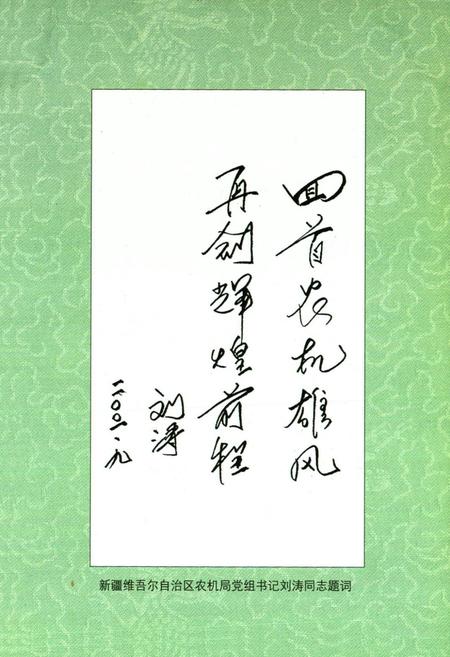 回首农机雄风
再创辉煌前程
刘涛
二〇〇一·九
新疆维吾尔自治区农机局党组书记刘涛同志题词